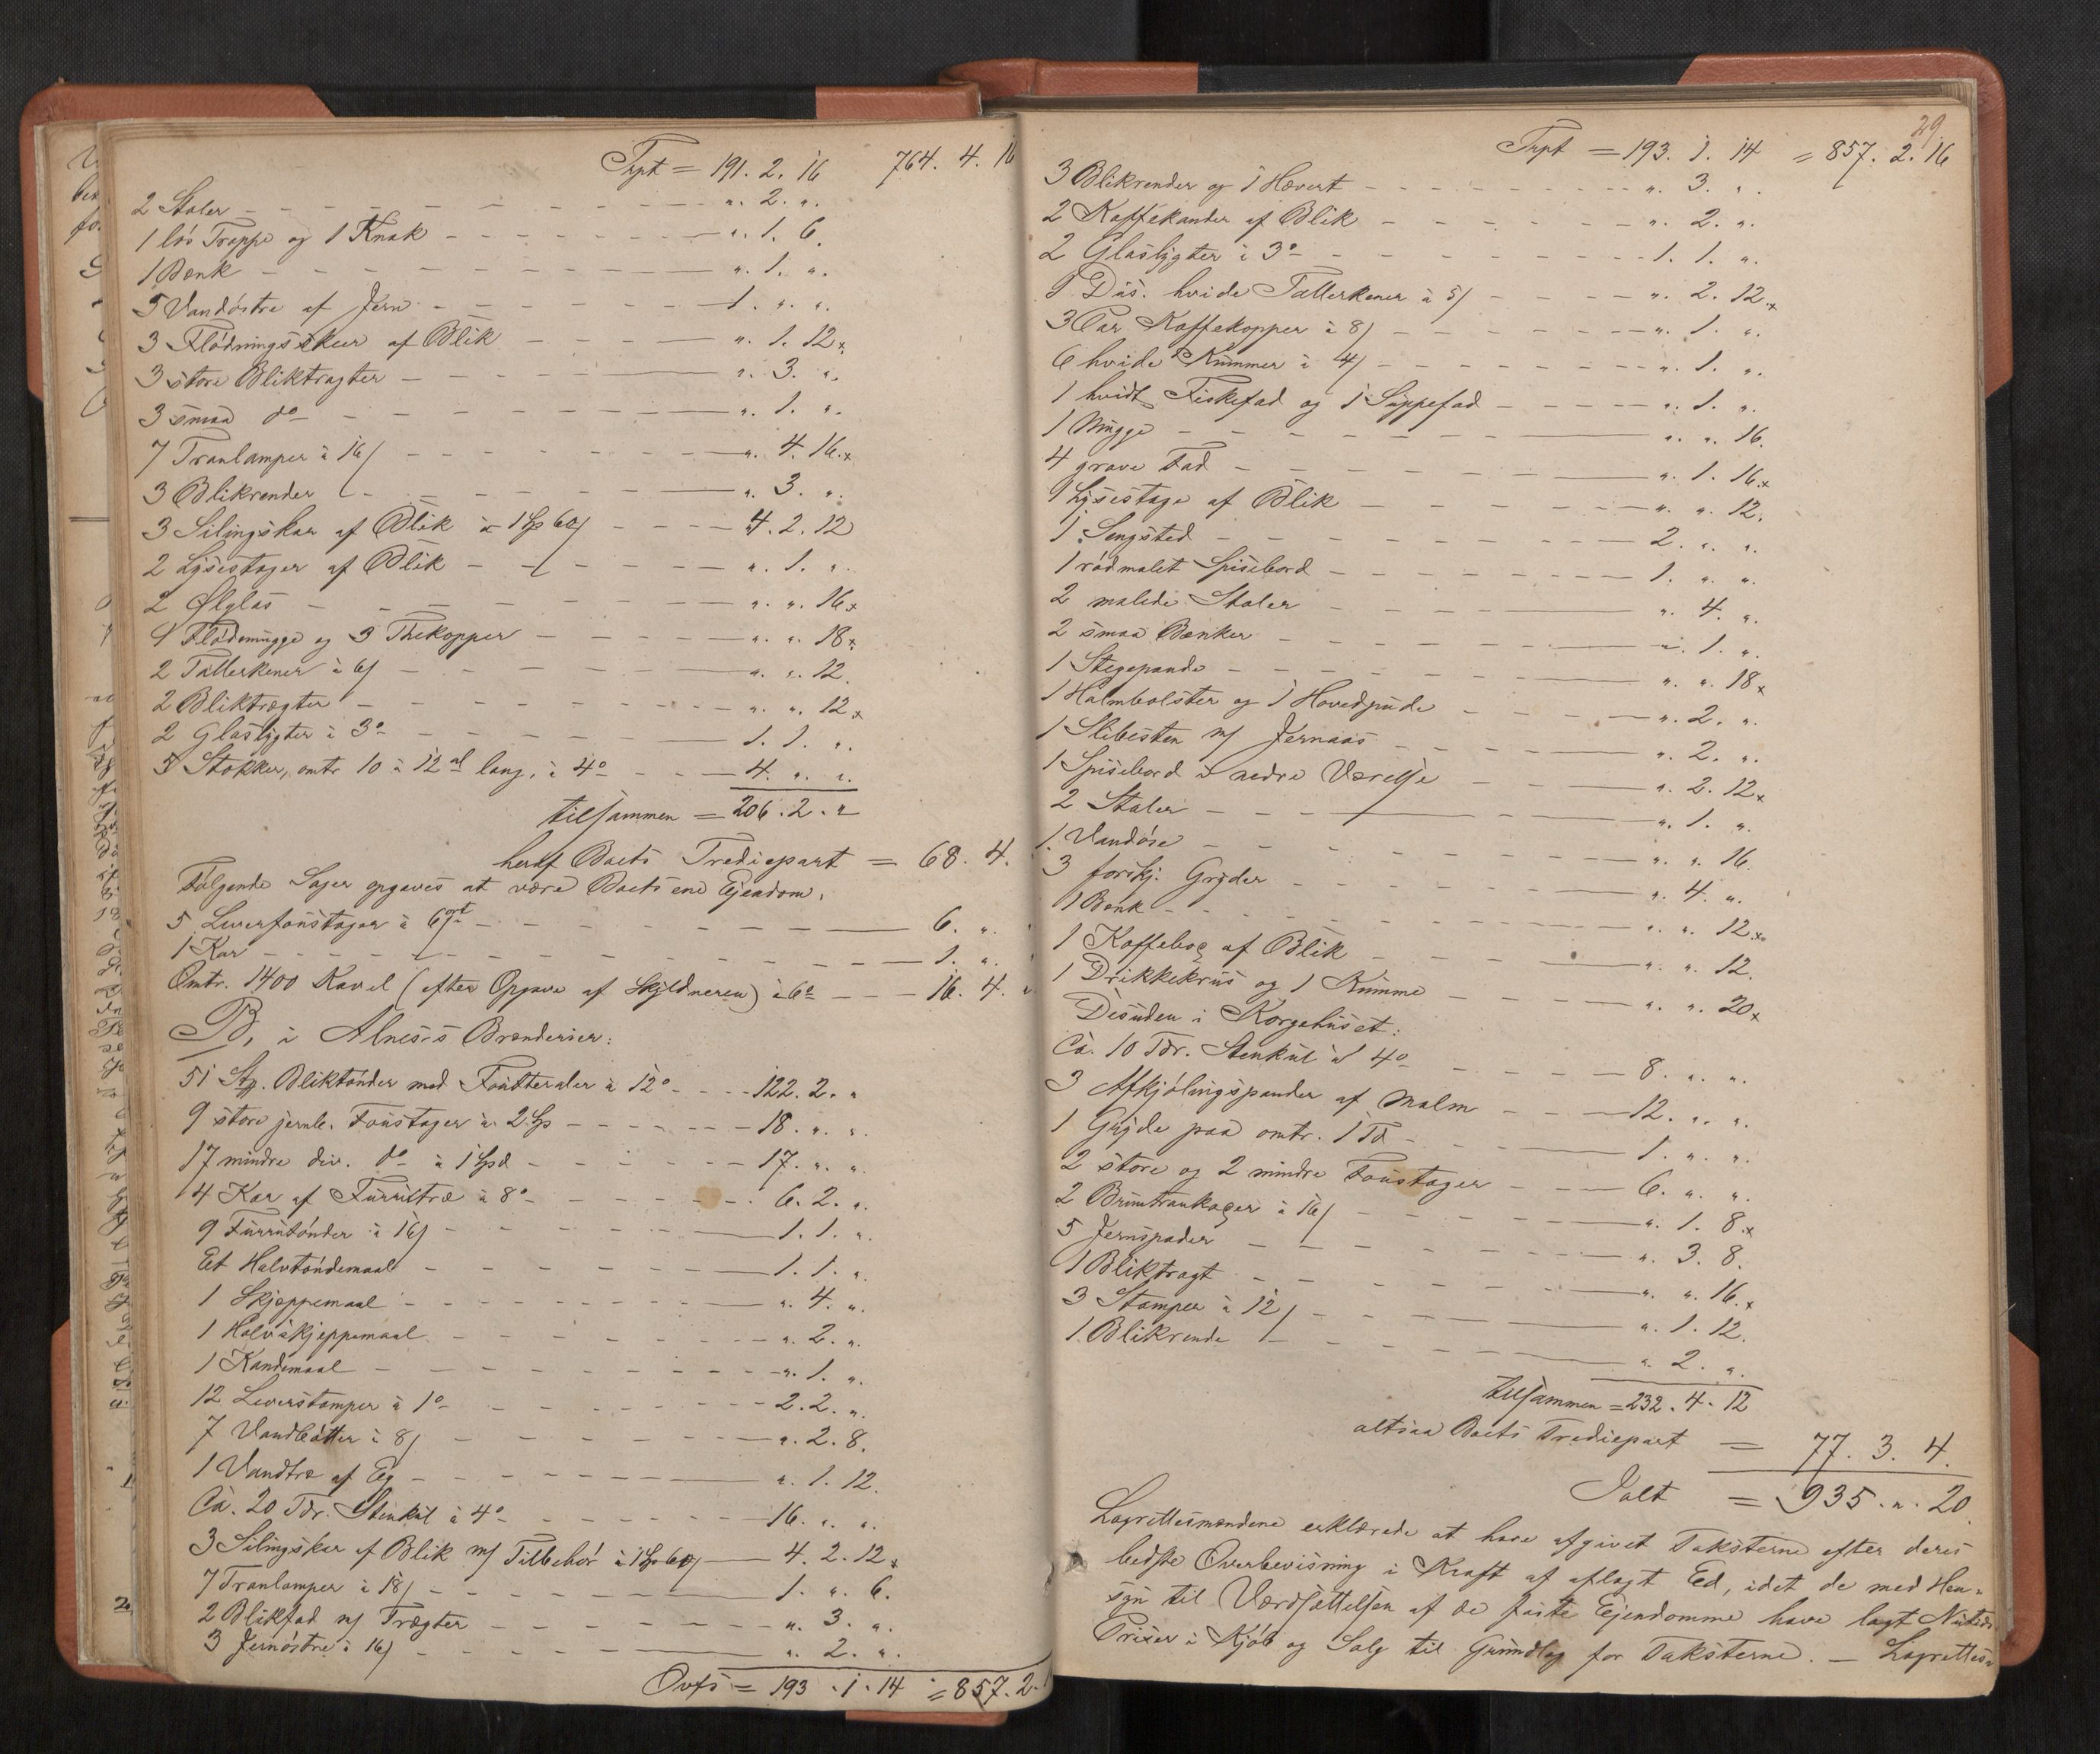 Trpt = 191. 2. 16 764. 4. 16
2 Stoler - - - ". 2. ".
1 lös Trappe og 1 Knak - - - ". 1. 6.
1 Bænk - - - ". 1. ".
5 Vandöstre af Jern - - - 1. ". ".
3 Flödnings af Blik - - - ". 1. 12.
3 store Bliktragter - - - ". 3. ".
3 smaa do - - - ". 1. ".
7 Tranlamper à 16 - - - ". 4. 16.
3 Blikrender - - - ". 3. ".
3 Silingskar af Blik à 1 60 - - - 4. 2. 12
2 Lysestager af Blik - - - ". 1. ".
2 Ølglas - - - ". ". 16
1 Flödemugge og 3 Thekopper - - - ". ". 18
2 Tallerkener à 6 - - - ". ". 12.
2 Bliktrægter - - - ". ". 12
2 Glaslygter à 3o - - - 1. 1. ".
5 Stokker, omtr 10 à 12 al lang, à 4o - - - 4. ". ".
tilsammen = 206. 2. "
heraf Boets Trediepart = 68. 4.
Følgende Sager opgaves at være Boets ene Ejendom.
5 Leverfoustager à 6 - - - 6. ".
1 Kar - - - 1. ".
Omtr. 1400 Kavel (efter Opgave af Skyldneren) à 6 - - - 16. 4. "
B, i Alnes's Brænderier:
51 Bliktönder med Foutteraler à 12o - - - 122. 2. "
9 store jernb. Foustager à 2 - - - 18. ". ".
17 mindre div. do à 1 - - - 17. ". ".
4 Kar af Furritræ à 8o - - - 6. 2. ".
9 Furrutönder à 16 - - - 1. 1. ".
Et Halvtöndemaal - - - 1. 1. ".
1 Skjæppemaal - - - ". 4. ".
1 Halvskjeppemaal - - - ". 2. ".
1 Kandemaal - - - ". 1. ".
12 Leverstamper à 1o - - - 2. 2. ".
7 Vandbötter à 8 - - - ". 2. 8.
1 Vandtræ af Eg - - - ". 1. 12.
Ca. 20 Tdr. Stenkul à 4o - - - 16. ". ".
3 Silingskar af Blik m/ Tilbehör à 1 60 - - - 4. 2. 12
7 Tranlamper à 18 - - - 1. ". 6.
2 Blikfad m/ Trægter - - - ". 3. ".
3 Jernöstre à 16 - - - ". 2. ".
Ovfs = 193. 1. 14 = 857. 2.
29
Trpt = 193. 1. 14 = 857. 2. 16
3 Blikrender og 1 Hævert - - - ". 3. ".
2 Kaffekander af Blik - - - ". 2. ".
2 Glaslygter à 3o - - - 1. 1. ".
1 Dus. hvide Tallerkener à 5 - - - ". 2. 12.
3 Par Kaffekopper à 8 - - - ". 1. ".
6 hvide Kummer à 4 - - - ". 1. ".
1 hvidt Fiskefad og 1 Suppefad - - - ". 1. ".
1 Mugge - - - ". ". 16.
4 grave Fad - - - ". 1. 16.
1 Lysestage af Blik - - - ". ". 12.
1 Sengsted - - - 2. ". ".
1 rödmalet Spisebord - - - 1. ". ".
2 malede Stoler - - - ". 4. ".
2 smaa Bænker - - - ". 1. ".
1 Stegepande - - - ". ". 18
1 Halmbolster og 1 Hovedpude - - - ". 2. ".
1 Slibesten m/ Jernaas - - - ". 2. ".
1 Spisebord i nedre Værelse - - - ". 2. 12
2 Stoler - - - ". 1. ".
1 Vandöse - - - ". ". 16.
3 forskj. Gryder - - - ". 4. ".
1 Bænk - - - ". ". 12
1 Kaffebox af Blik - - - ". ". 12.
1 Drikkekrus og 1 Kumme - - - ". ". 20
Desuden i Korgehuset:
Ca. 10 Tdr. Stenkul à 4o - - - 8. ". ".
3 Afkjölingspander af Malm - - - 12. ". ".
1 Gryde paa omtr. 1 Td - - - 1. ". ".
2 store og 2 mindre Foustager - - - 6. ". ".
2 Bruntrankager à 16 - - - ". 1. 8.
5 Jernspader - - - ". 3. 8.
1 Bliktragt - - - ". ". 16.
3 Stamper à 12 - - - ". 1. 12.
1 Blikrende - - - ". 2. ".
tilsammen = 232. 4. 12
altsaa Boets Trediepart = 77. 3. 4.
Ialt = 935. ". 20.
Lagrettesmændene erklærede at have afgivet Taksterne efter deres
bedste Overbevisning i Kraft af aflagt Ed, idet de med Hen-
syn til Værdsættelsen af de faste Ejendomme have lagt Nutids
Priser i Kjöb og Salg til Grundlag for Taksterne. — Lagrettes-